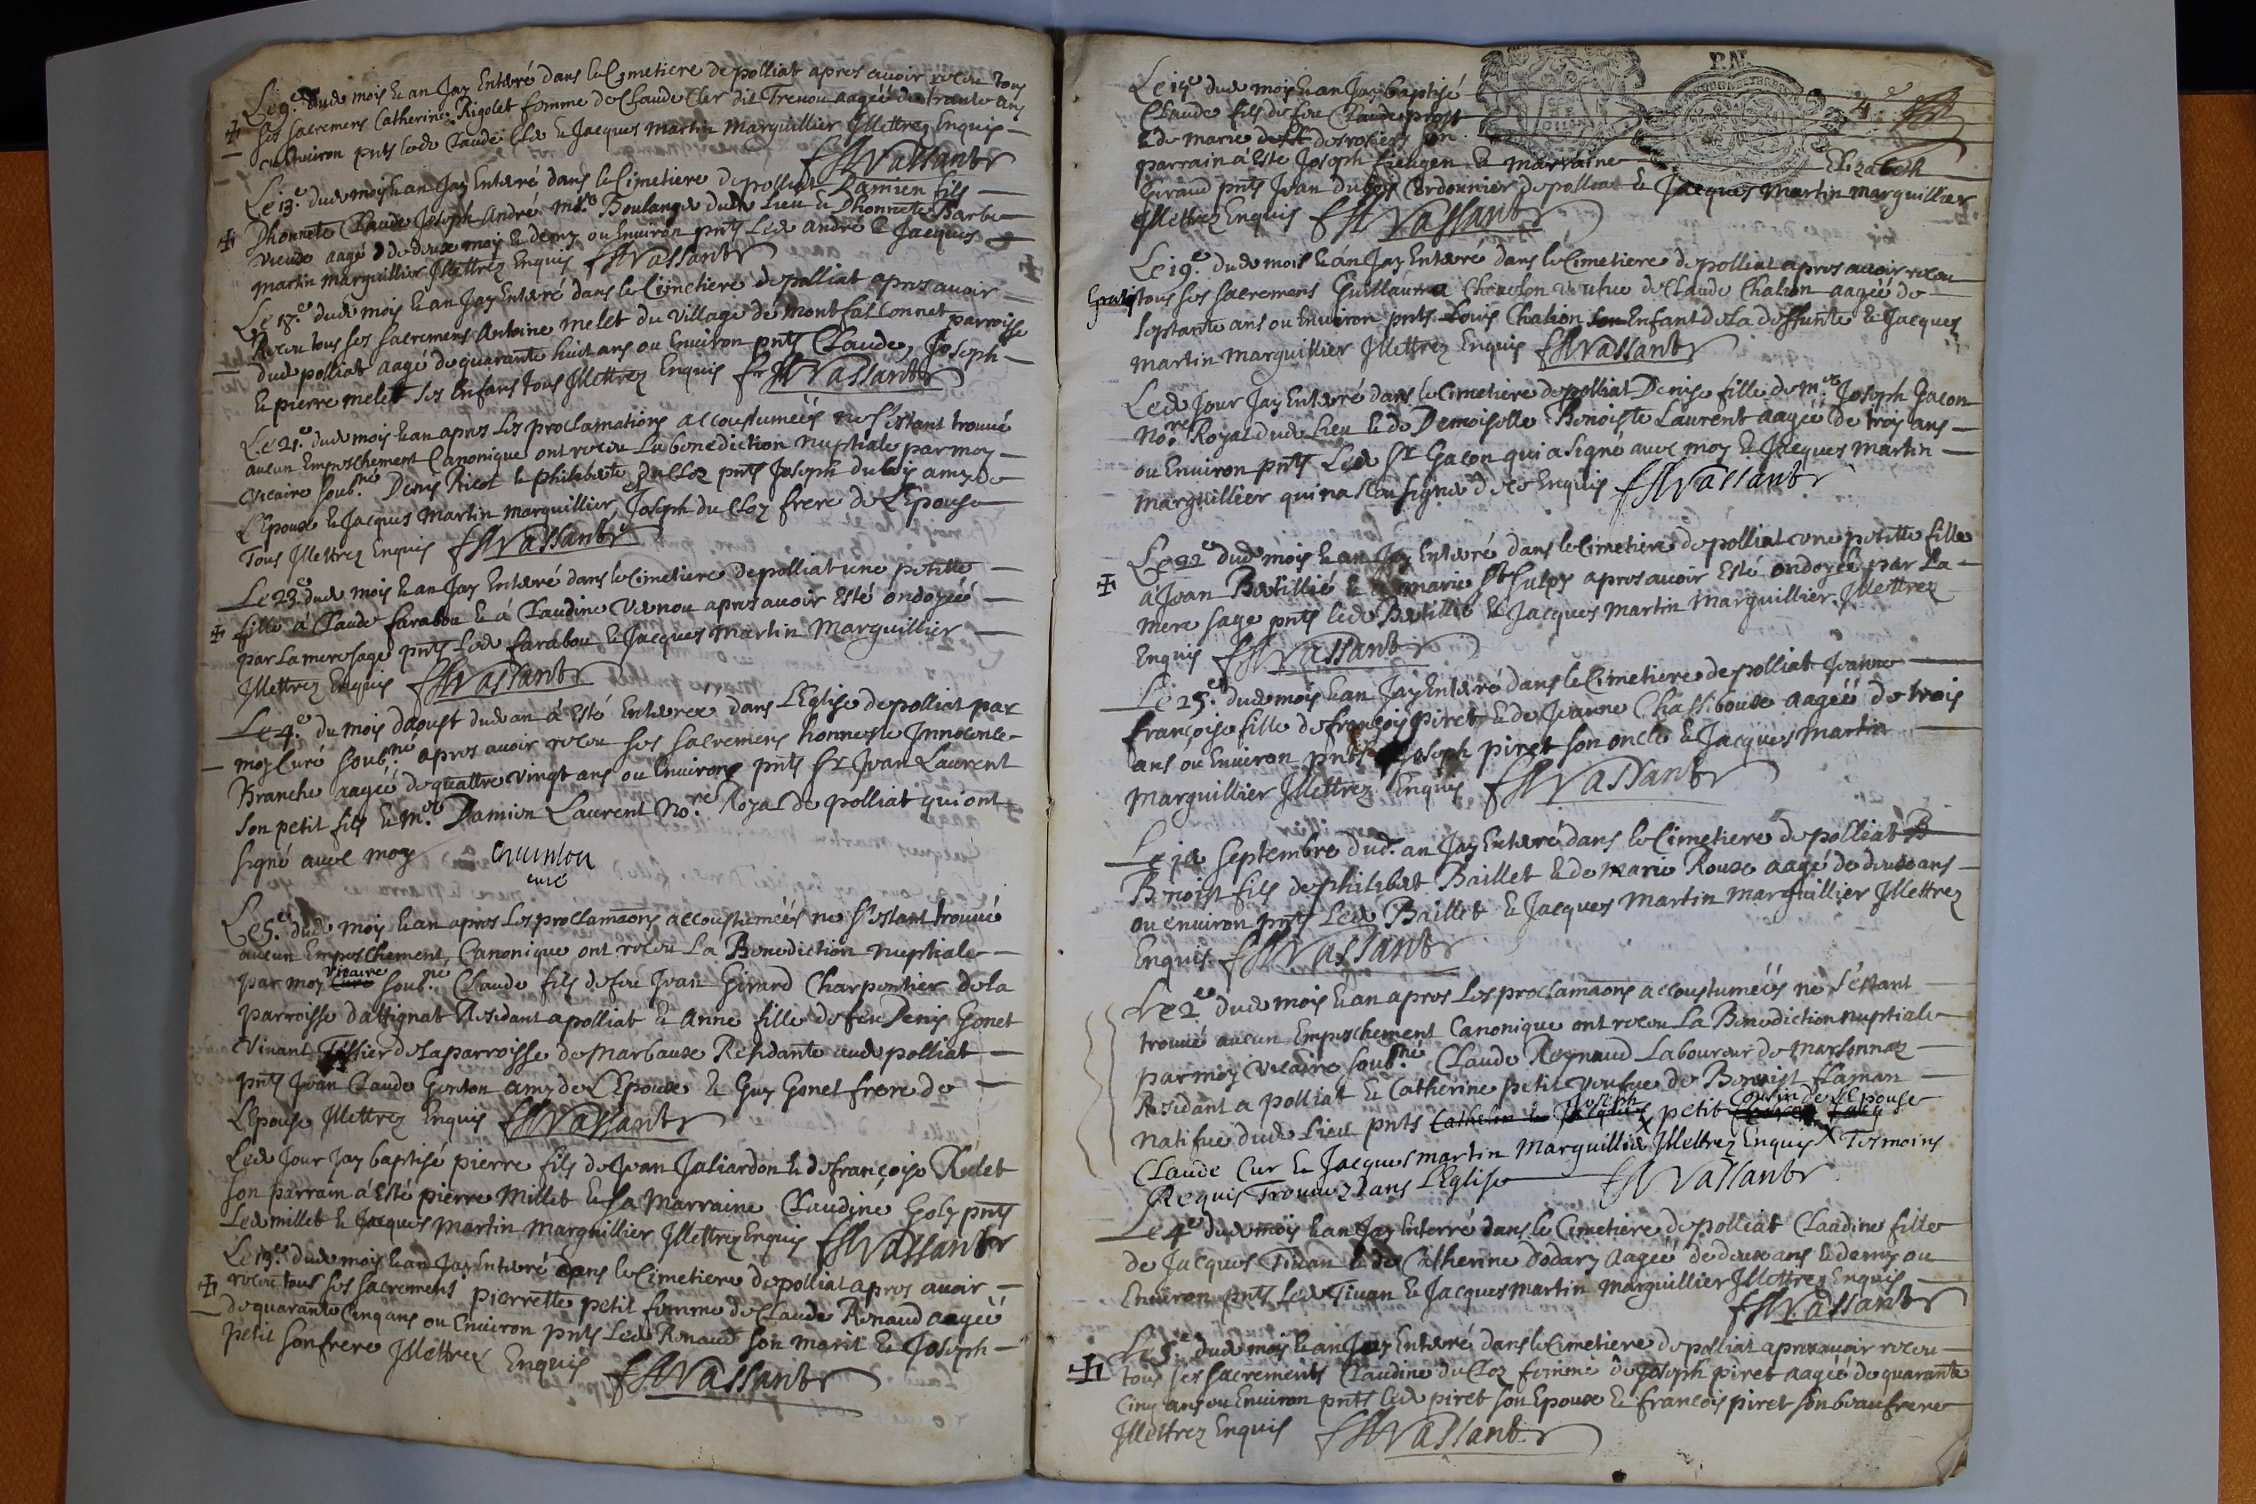 Le 9e dud mois & an Jay Enterré dans le Cimetiere de polliat apres avoir receu tous
ses sacremens Catherine Rigolet femme de Claude Cler dit Trenou aagée de trante ans
ou Environ pnts led Claude Cler & Jacques Martin Marguillier Illettrez Enquis
Vassant
Le 13e dud moys & an Jay Enterré dans le Cimetiere de polliat Damien fils
Dhonnete Claude Joseph André Mre Boulanger dud Lieu & Dhonnete Barbe
aagé de deux moys & demy ou Environ pnts Led André & Jacques
Martin Marguillier Illettrez Enquis Vassant
Le 18e dud mois & an Jay Enterré dans le Cimetiere de polliat apres avoir
Receu tous ses sacremens Antoine Melet du Village de Montfalconnet parroisse
dud polliat aagé de quarante huit ans ou Environ pnts Claude, Joseph
& pierre melet ses Enfans tous Illettrez Enquis Vassant
Le 21e dud mois & an apres les proclamations accoustumées ne s'estant trouvé
aucun Empeschement Canonique ont receu La benediction nuptiale par moy
vicaire soubné Denis Ricol & philiberte du Cloz pnts Joseph duboys amy de
L'Epoux & Jacques Martin Marguillier, Joseph du Cloz frere de L'Epouse
Tous Illettrez Enquis Vassant
Le 23e dud mois & an Jay Enterré dans le Cimetiere de polliat une petitte
fille à Claude farabou & à Claudine Vernou apres avoir Esté ondoyée
par La mere sage pnts Led farabou & Jacques Martin Marguillier
Illettrez Enquis Vassant
Le 4e du mois daoust dud an à Esté Enterrée dans L'Eglise de polliat par
moy Curé soubné apres avoir receu ses sacremens honneste Innocente
Branche aagée de quattre vingt ans ou Environ pnts Sr Jean Laurent
son petit fils & Mre Damien Laurent Nore Royal de polliat qui ont
signé avec moy
curé
Le 5e dud moy & an apres Les proclamaons accoustumées ne s'estant trouvé
aucun Empeschement, Canonique ont receu La Benediction nuptiale
par moy vicaire soubné Claude fils de feu Jean Girard Charpentier de la
parroisse dattignat Residant a polliat & Anne fille de feu Denis Gonet
Vivant Tissier de La parroisse de Marbaux Residante aud polliat
pnts Jean Claude Genton amy de L'Epoux & Guy Gonet frere de
L'Epouse Illettrez Enquis Vassant
Led Jour Jay baptisé pierre fils de Jean Jaliardon & de françoise Relet
son parrain à Esté pierre Millet & sa Marraine Claudine Goly pnts
Led millet & Jacques Martin Marguillier Illettrez Enquis Vassant
Le 13e dud mois & an Jay Enterré dans le Cimetiere de polliat apres avoir
receu tous ses sacremens pierrette petit femme de Claude Renaud aagée
de quarante Cinq ans ou Environ pnts Led Renaud son marit & Joseph
petit son frere Illettrez Enquis Vassant
P.N.
4e
Le 15e dud mois & an Jay baptisé
Claude fils de feu Claude prost
& de Marie desrosiers son
parrain à Esté Joseph & Marraine Elizabeth
Giraud pnts Jean duboys Cordonnier de polliat & Jacques Martin Marguillier
Illettrez Enquis Vassant
Le 19e dud mois & an Jay Enterré dans le Cimetiere de polliat apres avoir receu
tous ses sacremens Guillauma Chevelon veufve de Claude Chalion aagée de
septante ans ou Environ pnts Louis Chalion Enfant de La deffunte & Jacques
Martin Marguillier Illettrez Enquis Vassant
Led Jour Jay Enterré dans le Cimetiere de polliat Denise fille de Mre Joseph Gacon
Nore Royal dud Lieu & de Demoiselle Benoiste Laurent aagée de trois ans
ou Environ pnts Led Sr Gacon qui a signé avec moy & Jacques Martin
Marguillier qui na sceu signer de ce Enquis Vassant
Le 22e dud mois & an Jay Enterré dans le Cimetiere de polliat une petitte fille
a Jean Betillié & à marie St Sulpy apres avoir Esté ondoyée par La
mere sage pnts Led Betillié & Jacques Martin Marguillier Illettrez
Enquis Vassant
Le 25e dud mois & an Jay Enterré dans le Cimetiere de polliat Jeanne
françoise fille de françois piret & de Jeanne Chassiboux aagée de trois
ans ou Environ pnts Joseph piret son oncle & Jacques Martin
Marguillier Illettrez Enquis Vassant
Le 1er Septembre dud. an Jay Enterré dans le Cimetiere de polliat
Benoist fils de philibert Baillet & de Marie Roux aagé de deux ans
ou environ pnts Led Baillet & Jacques Martin Marguillier Illettrez
Enquis Vassant
Le 2e dud mois & an apres Les proclamaons accoustumées ne s'estant
trouvé aucun Empeschement Canonique ont receu La Benediction nuptiale
par moy vicaire soubné Claude Reynaud Laboureur de Marsonnaz
Residant a polliat & Catherine petit veufve de Benoist flaman
natifve dud Lieu pnts Joseph petit Cousin de L'Epouse
Claude Cur & Jacques martin Marguillier Illettrez Enquis Tesmoins
Requis Trouvez dans L'Eglise Vassant
Le 4e dud mois & an Jay Enterré dans le Cimetiere de polliat Claudine fille
de Jacques Tivan & de Catherine Dodary aagée de deux ans & demy ou
Environ pnts Led Tivan & Jacques Martin Marguillier Illettrez Enquis
Vassant
Le 5e dud mois & an Jay Enterré dans le Cimetiere de polliat apres avoir receu
tous ses sacrements Claudine du Cloz femme de Joseph piret aagée de quarante
Cinq ans ou Environ pnts led piret son Epoux & françois piret son beaufrere
Illettrez Enquis Vassant